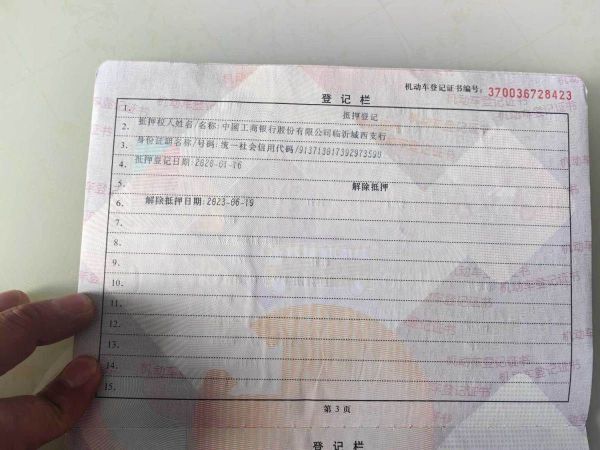 机动车登记证书编号: 370036728423
登记栏
1. 抵押登记
2. 抵押权人姓名/名称: 中国工商银行股份有限公司临沂城西支行
3. 身份证明名称/号码: 统一社会信用代码/
4. 抵押登记日期: 2020-01-16
5. 解除抵押
6. 解除抵押日期: 2023-06-19
7.
8.
9.
10.
11.
12.
13.
14.
15.
第 3 页
登记栏